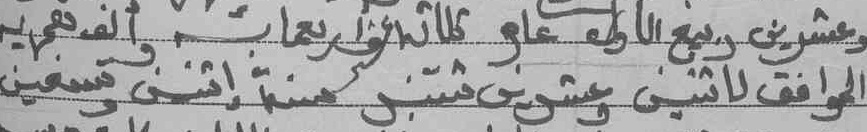 وعشرين ربيع الاول عام ثلاثة وأربعمائة وألف هجرية
الموافق لاثنين وعشرين شتنبر سنة اثنين وتسعين